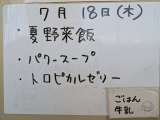 7月 18日(木)
・夏野菜飯
・パワースープ
・トロピカルゼリー
ごはん
牛乳